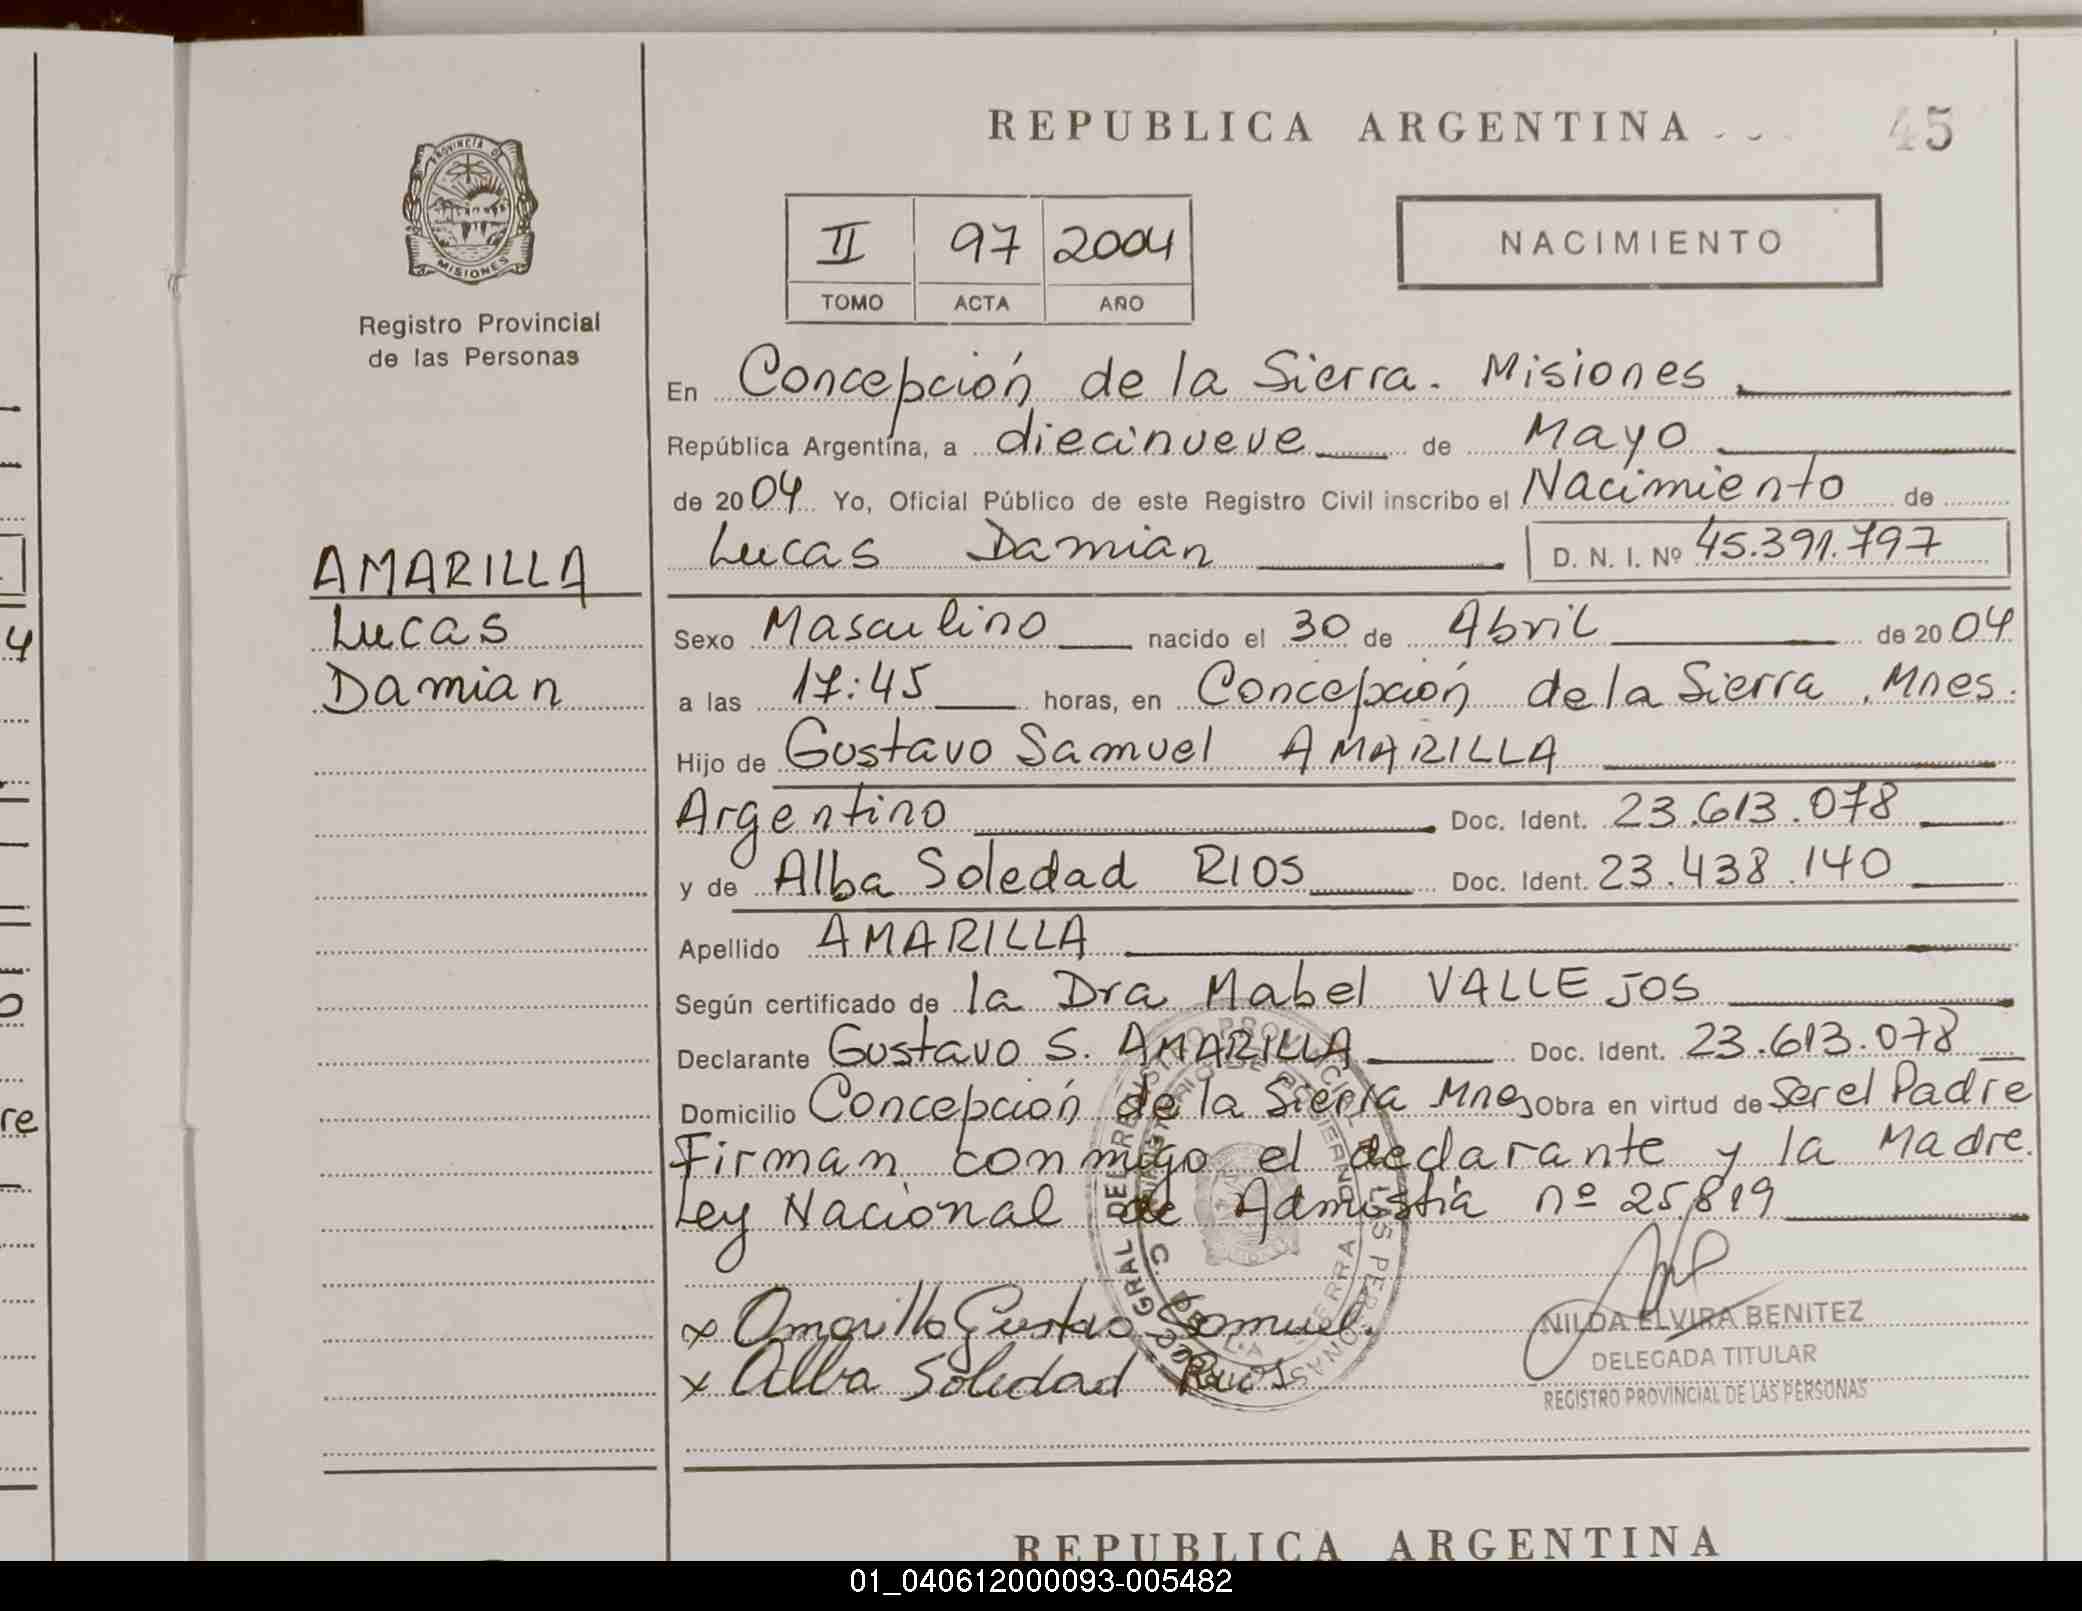 REPUBLICA ARGENTINA
45
PROVINCIA DE
MISIONES
Registro Provincial
de las Personas
II 97 2004
TOMO ACTA AÑO
NACIMIENTO
En Concepción de la Sierra. Misiones
República Argentina, a diecinueve de Mayo
de 2004 Yo, Oficial Público de este Registro Civil inscribo el Nacimiento de
Lucas Damian D. N. I. Nº 45.391.797
AMARILLA
Lucas
Damian
Sexo Masculino nacido el 30 de Abril de 2004
a las 17:45 horas, en Concepción de la Sierra, Mnes.
Hijo de Gustavo Samuel AMARILLA
Argentino Doc. Ident. 23.613.078
y de Alba Soledad RIOS Doc. Ident. 23.438.140
Apellido AMARILLA
Según certificado de la Dra Mabel VALLEJOS
Declarante Gustavo S. AMARILLA Doc. Ident. 23.613.078
Domicilio Concepción de la Sierra Mnes Obra en virtud de Ser el Padre
Firman conmigo el declarante y la Madre.
Ley Nacional de Admistía nº 25.819
x Amarilla Gustavo Samuel.
x Alba Soledad Rios
NILDA ELVIRA BENITEZ
DELEGADA TITULAR
REGISTRO PROVINCIAL DE LAS PERSONAS
REPUBLICA ARGENTINA
01_040612000093-005482